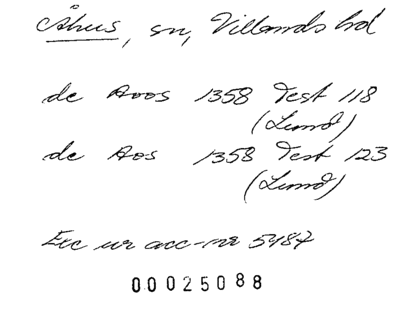 Åhus, sn, Villands hd
de Aoos 1358 Test 118
(Lund)
de Aos 1358 Test 123
(Lund)
Exc ur acc-nr 5487
00025088